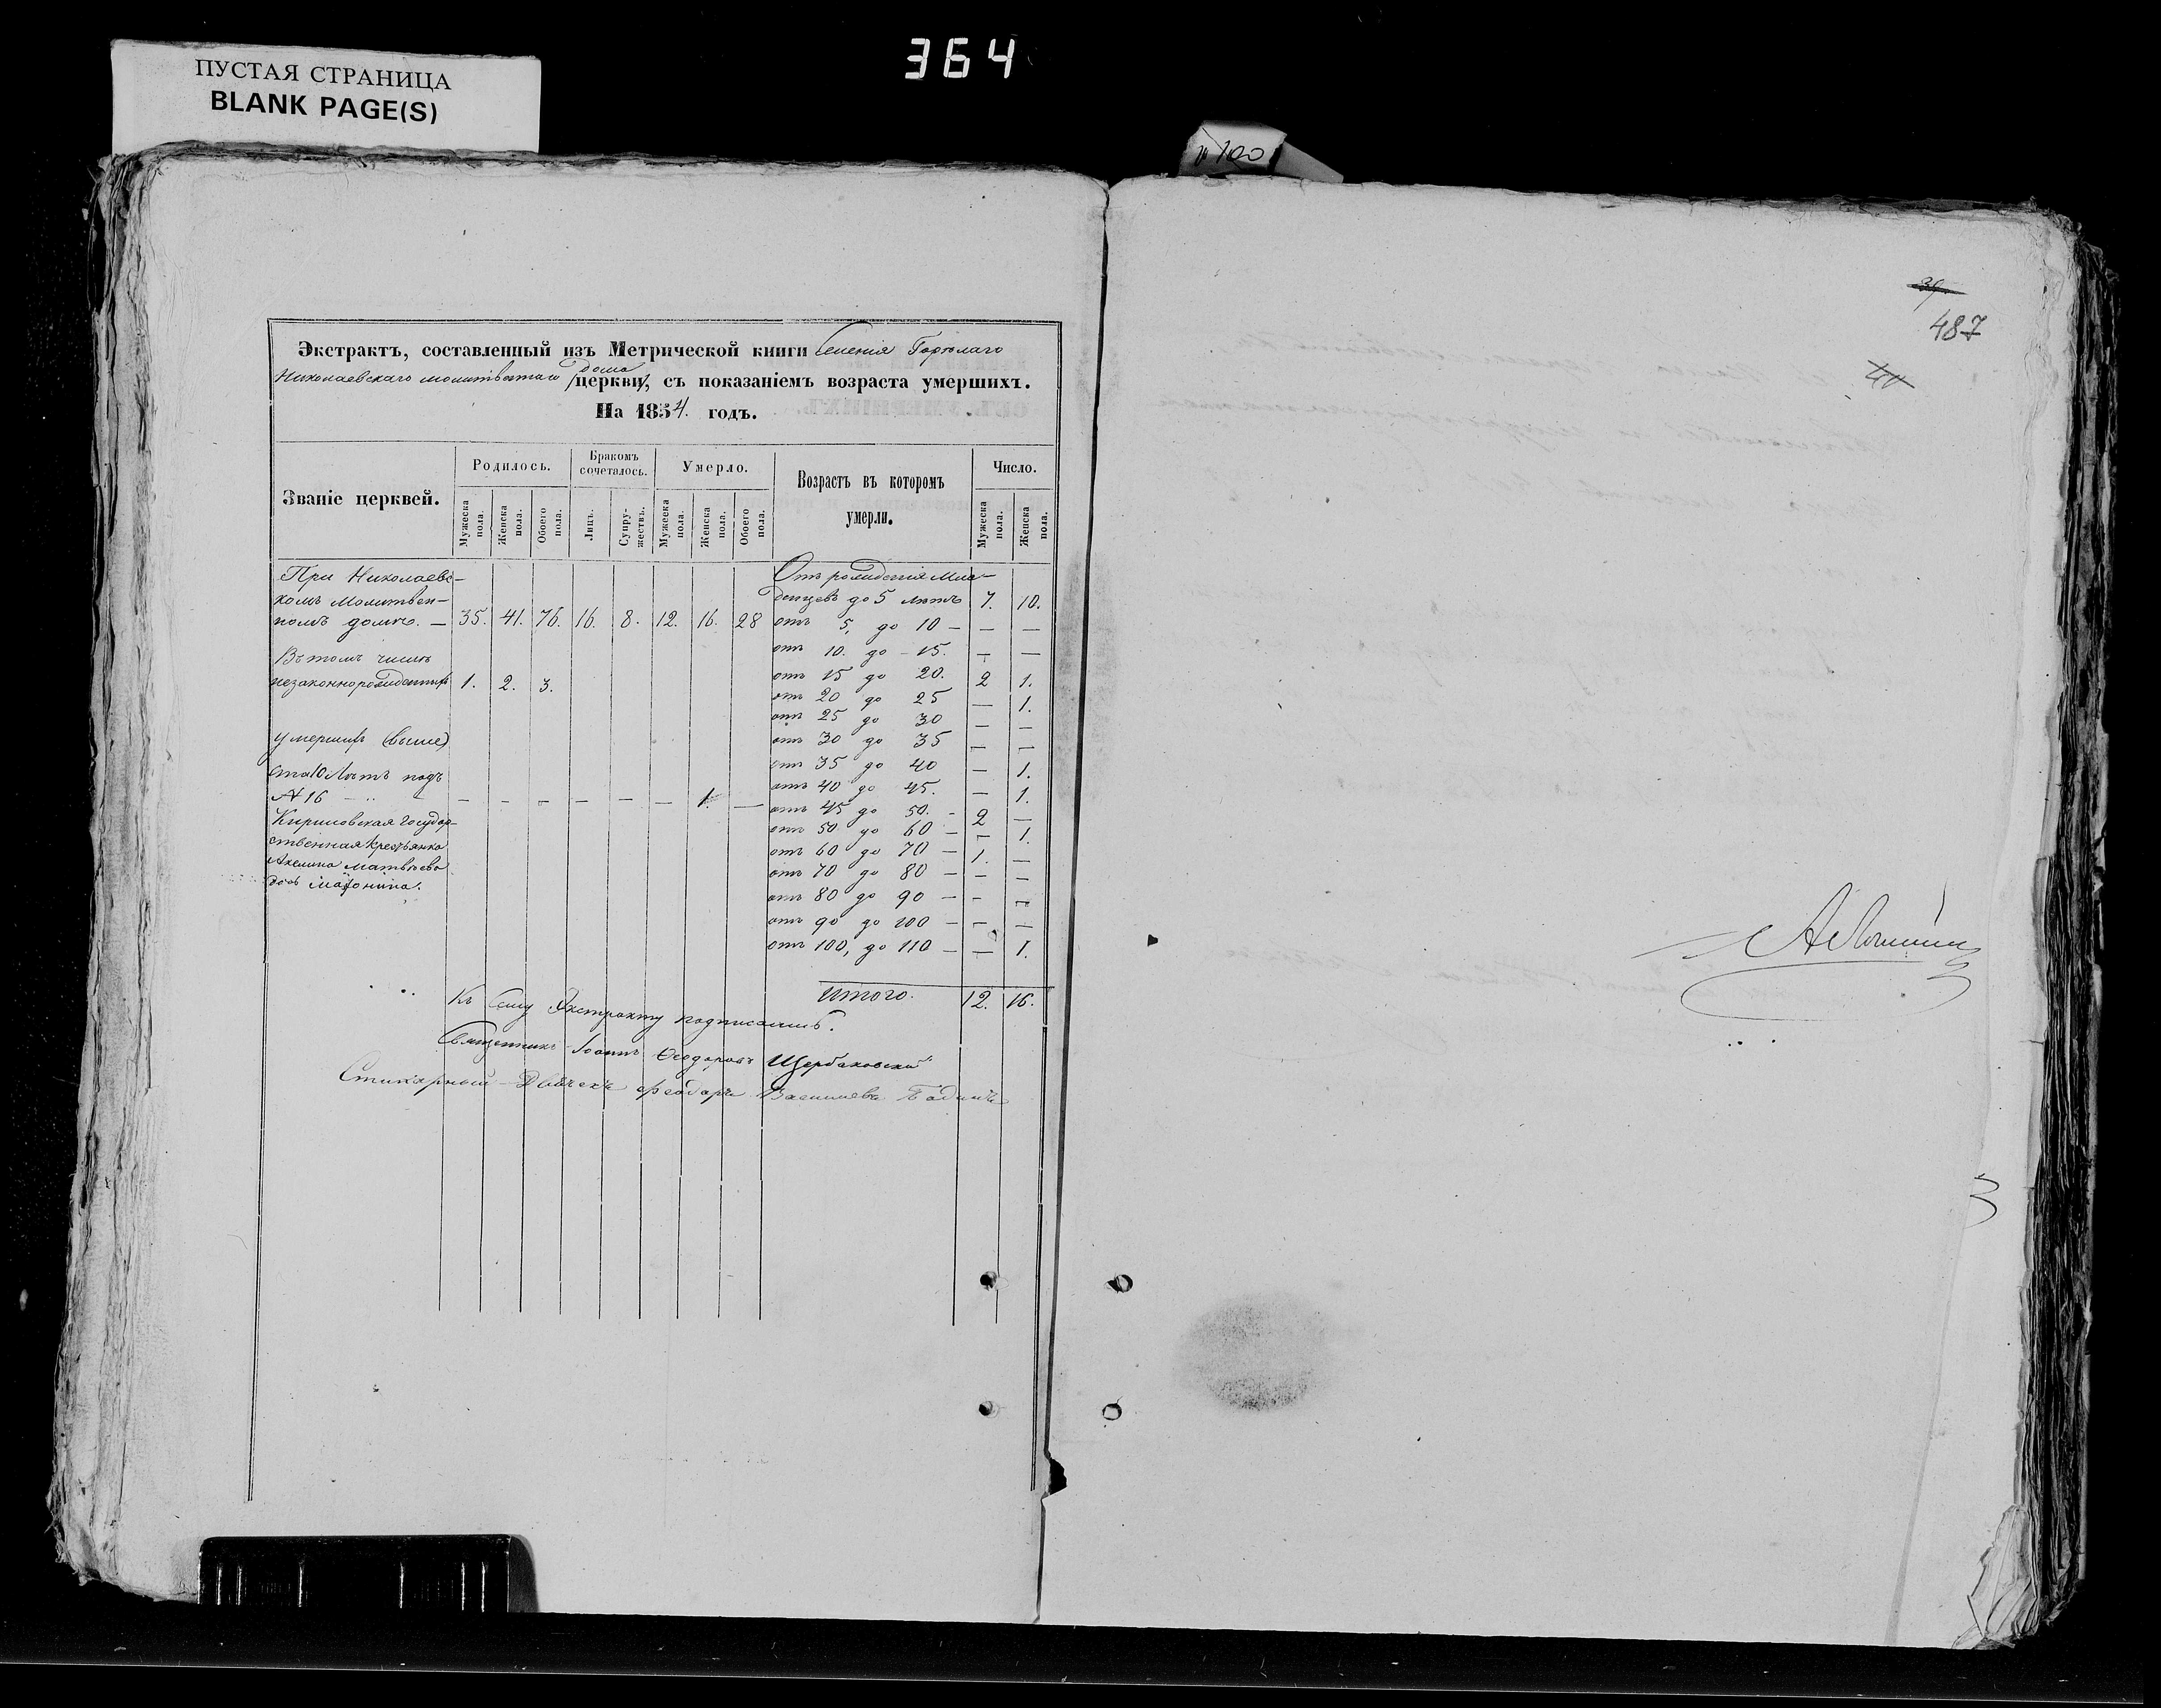 364
ПУСТАЯ СТРАНИЦА
BLANK PAGE(S)
№ 100
39
487
40
Экстрактъ, составленный изъ Метрической книги Селенія Горѣлаго
Николаевскаго молитвеннаго дома
/церкви/, съ показаніемъ возраста умершихъ.
На 1854. годъ.
Званіе церквей.
Родилось.
Бракомъ сочеталось.
Умерло.
Возрастъ въ которомъ умерли.
Число.
Мужеска пола.
Женска пола.
Обоего пола.
Лицъ.
Супружествъ.
Мужеска пола.
Женска пола.
Обоего пола.
Мужеска пола.
Женска пола.
При Николаевс-
комъ Молитвен-
номъ домѣ. — 35. 41. 76. 16. 8. 12. 16. 28
Въ томъ числѣ
незаконнорожденныхъ 1. 2. 3.
умершихъ (выше)
ста 10 Лѣтъ подъ
№ 16 — — — — — — — 1. —
государ-
ственная крестьянка
Акелина Матвѣева
Отъ рожденія Мла-
денцевъ до 5 лѣтъ 7. 10.
отъ 5, до 10 — — —
отъ 10. до 15. — —
отъ 15 до 20. 2 1.
отъ 20 до 25 — 1.
отъ 25 до 30 — —
отъ 30 до 35 — —
отъ 35 до 40 — 1.
отъ 40 до 45. — 1.
отъ 45 до 50. — 2 —
отъ 50 до 60 — — 1.
отъ 60 до 70 — 1. —
отъ 70 до 80 — — —
отъ 80 до 90 — — —
отъ 90 до 100 — — —
отъ 100, до 110 — — 1.
Итого. 12. 16.
Къ Сему Экстракту подписались.
Священникъ Іоаннъ Ѳеодоровъ Щербаковскій
Стихарный Дьячекъ Феодоръ Васильевъ